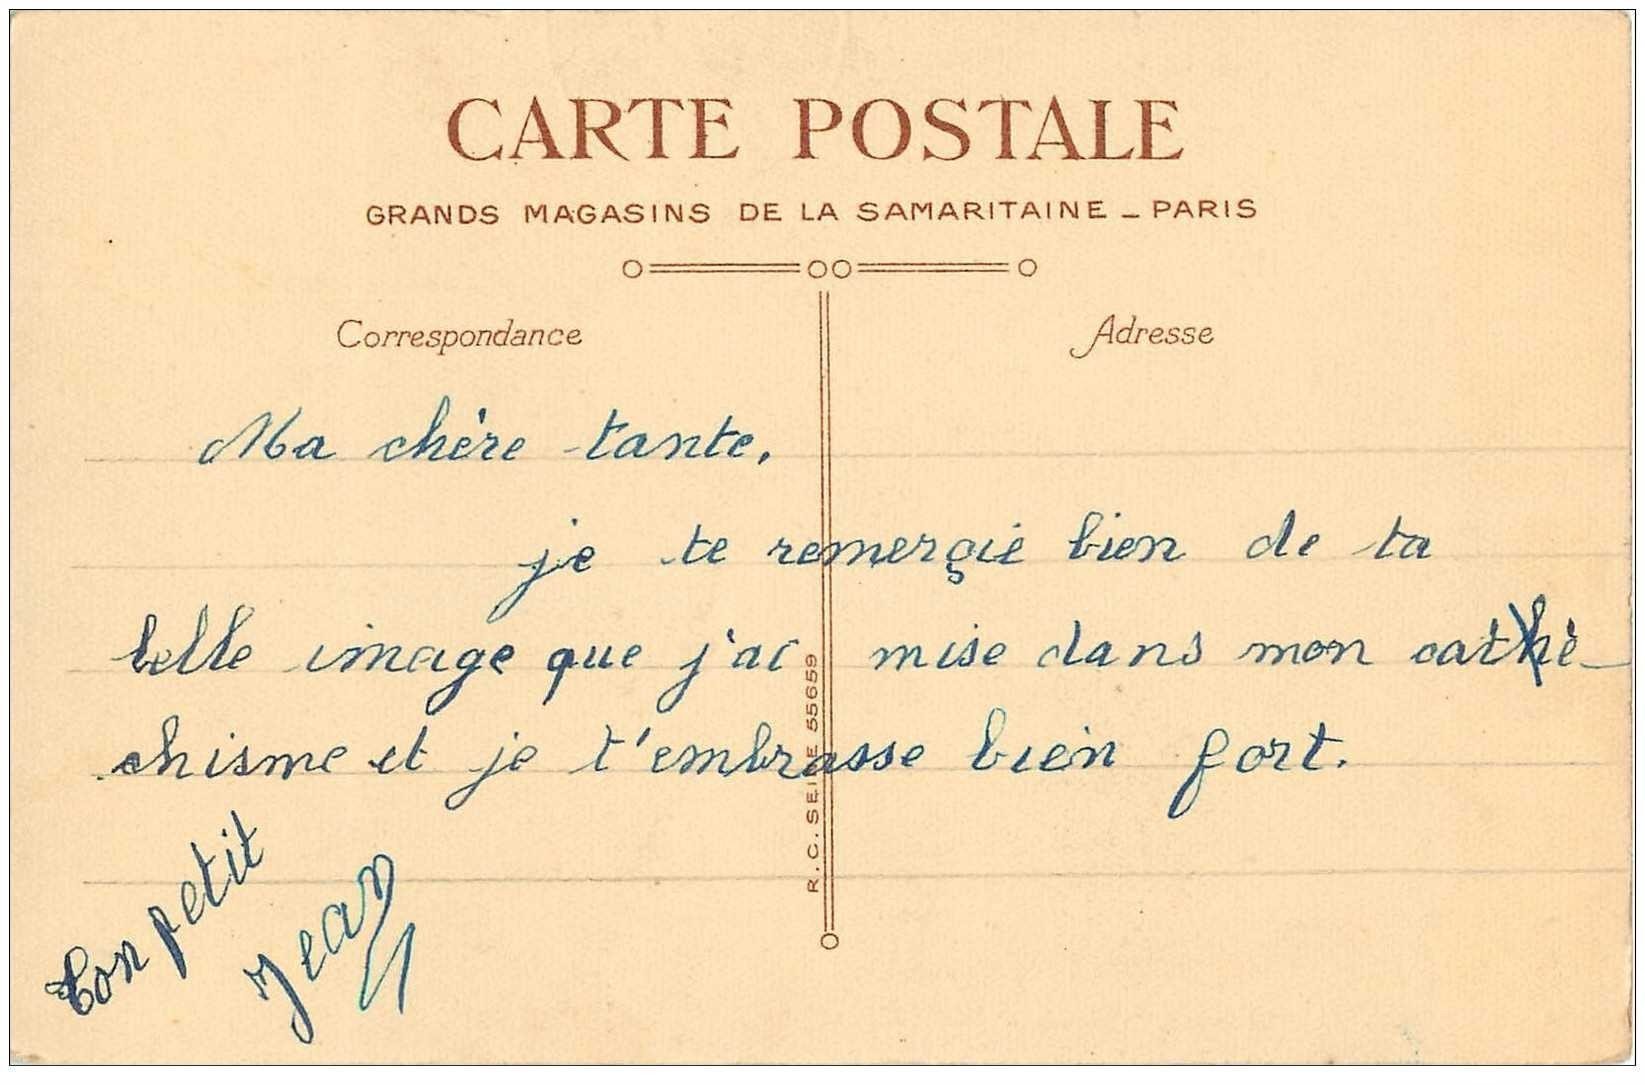 CARTE POSTALE
GRANDS MAGASINS DE LA SAMARITAINE - PARIS
Correspondance
Adresse
Ma chère tante,
je te remerçie bien de ta
belle image que j'ai mise dans mon caté-
chisme et je t'embrasse bien fort.
Ton petit
Jean
R.C. SEINE 55659